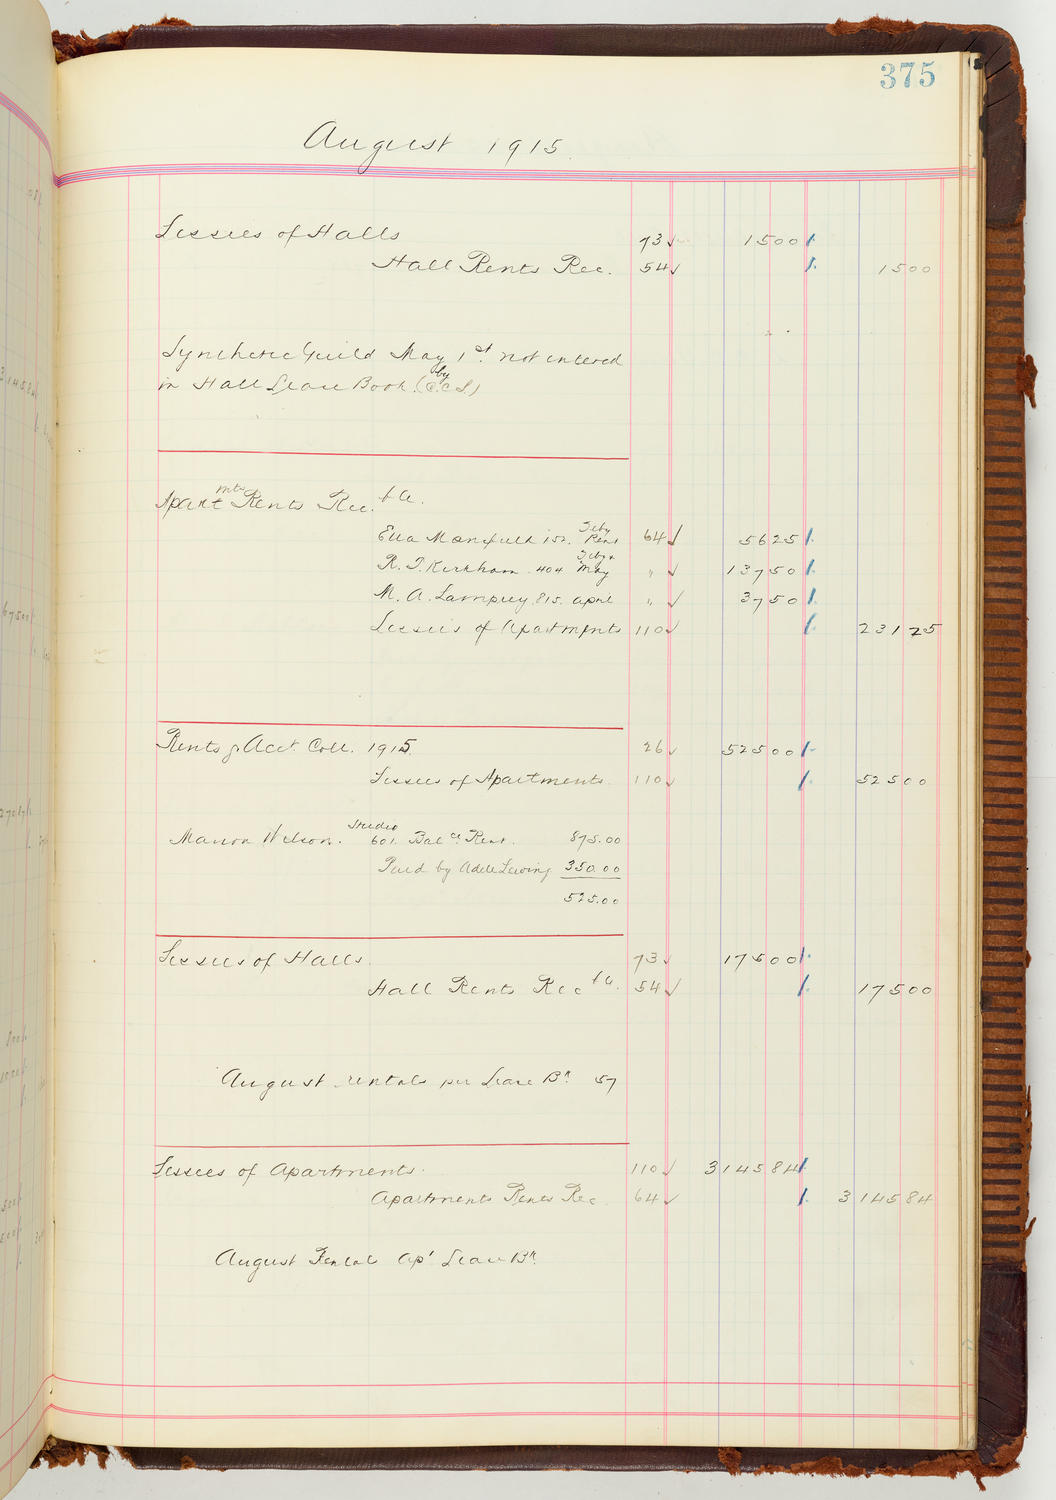 375
August 1915
Lessees of Halls 73 1500
Hall Rents Rec. 54 1500
Synthetic Guild May 1st not entered
in Hall Lease Book. (by C.C.S.)
Apartmts Rents Rec.
Ella Manfield 152. Feby Rent 64 5625
R. T. Kirkham 404 Feby & May " 13750
M. A. Lamprey. 815. April " 3750
Lessees of Apartments 110 23125
Rents & Acct Coll. 1915 26 52500
Lessees of Apartments 110 52500
Marion Wilson. Studio 601. Balce Rent. 875.00
Paid by Adele Lewing 350.00
525.00
Lessees of Halls. 73 17500
Hall Rents Rec 54 17500
August rentals per Lease Bk 57
Lessees of Apartments. 110 314584
Apartments Rents Rec 64 314584
August Rental Apt Lease Bk